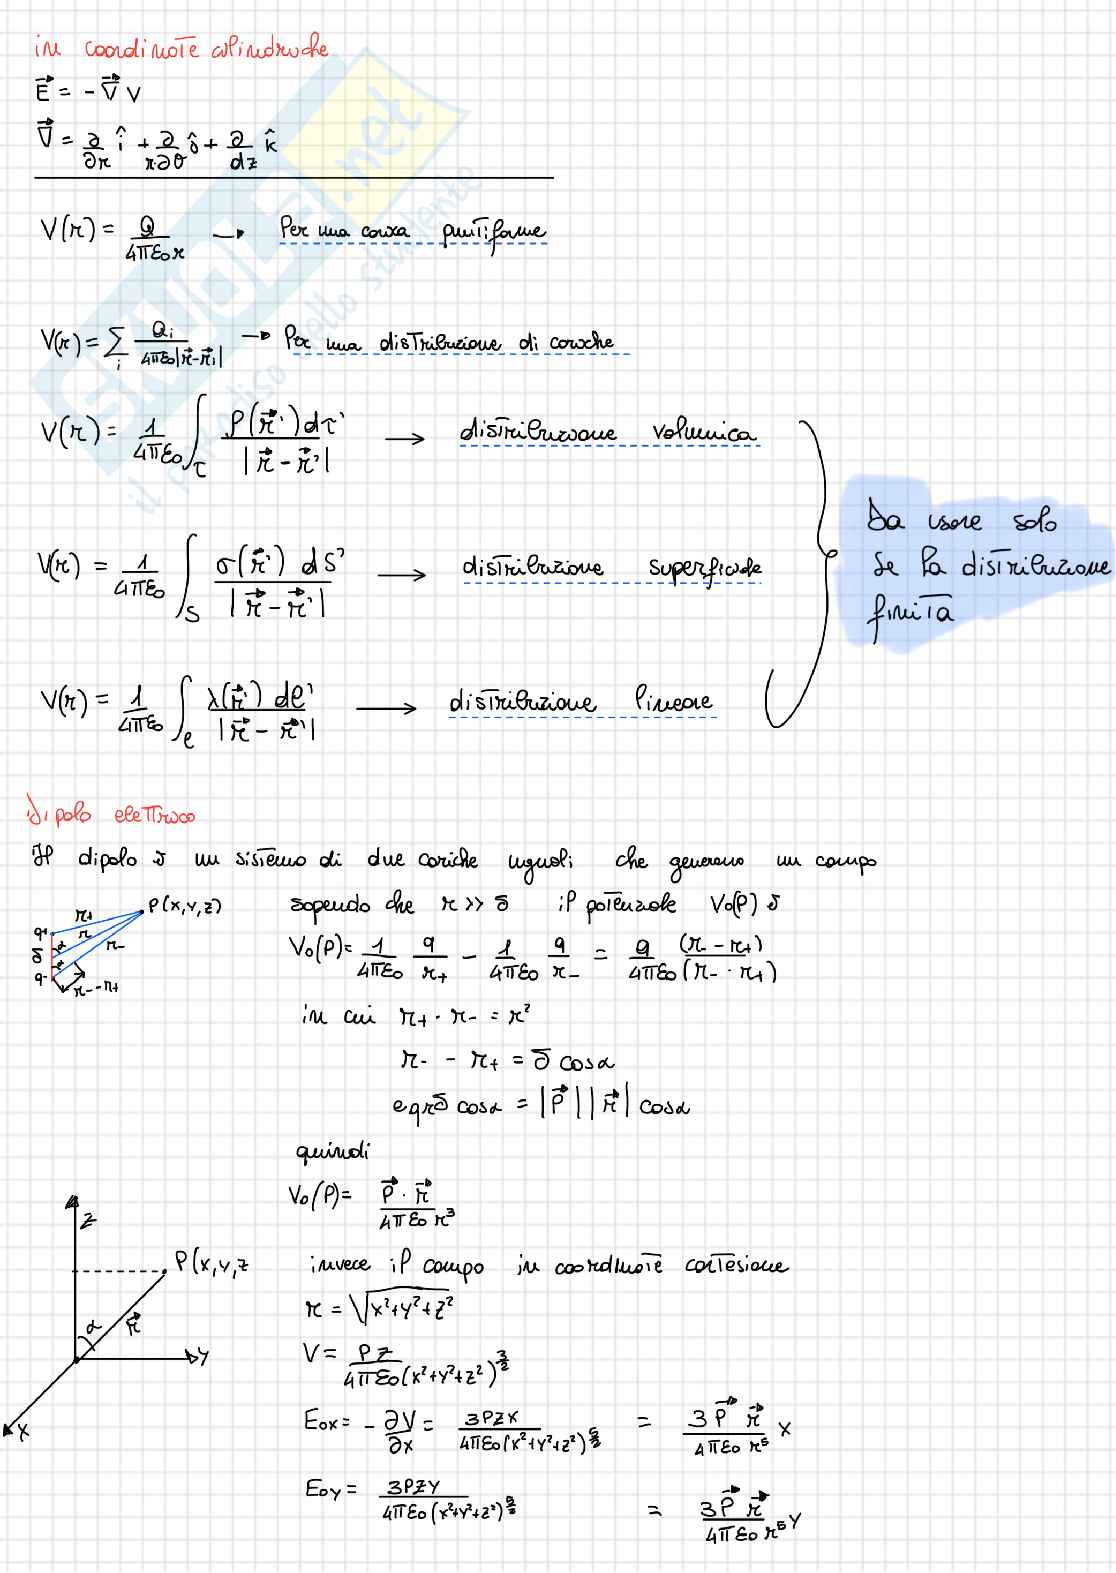 in coordinate cilindriche
E⃗ = - ∇⃗ V
∇⃗ = ∂/∂r î + ∂/r∂θ ĵ + ∂/dz k̂
V(r) = Q/4πε₀r → Per una carica puntiforme
V(r) = Σᵢ Qᵢ/4πε₀|r⃗-r⃗ᵢ| → Per una distribuzione di cariche
V(r) = 1/4πε₀ ∫τ ρ(r⃗')dτ'/|r⃗-r⃗'| → distribuzione volumica
V(r) = 1/4πε₀ ∫S σ(r⃗') dS'/|r⃗-r⃗'| → distribuzione superficiale
V(r) = 1/4πε₀ ∫ℓ λ(r⃗') dℓ'/|r⃗-r⃗'| → distribuzione lineare
Da usare solo
se la distribuzione
finita
dipolo elettrico
Il dipolo è un sistema di due cariche uguali che generano un campo
P(x,y,z)
r+
r
r-
q+
δ
q-
α
α
r- - r+
sapendo che r >> δ il potenziale V₀(P) è
V₀(P) = 1/4πε₀ q/r+ - 1/4πε₀ q/r- = q/4πε₀ (r- - r+)/(r- · r+)
in cui r+ · r- = r²
r- - r+ = δ cosα
e qrδ cosα = |P⃗||r⃗| cosα
quindi
V₀(P) = P⃗ · r⃗/4πε₀ r³
z
P(x,y,z
α
r⃗
y
x
invece il campo in coordinate cartesiane
r = √x²+y²+z²
V = Pz/4πε₀(x²+y²+z²)^3/2
E₀x = - ∂V/∂x = 3Pzx/4πε₀(x²+y²+z²)^5/2 = 3P⃗ r⃗/4πε₀ r⁵ x
E₀y = 3Pzy/4πε₀(x²+y²+z²)^5/2 = 3P⃗ r⃗/4πε₀ r⁵ y
SKUOLA.net
il paradiso dello studente